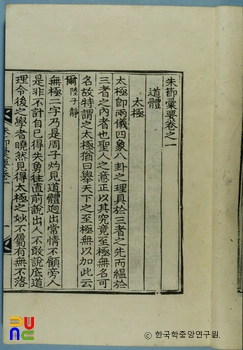 朱節彙要卷之一
道體
太極
太極卽兩儀四象八卦之理具於三者之先而縕於
三者之內者也聖人之意正以其究竟至極無名可
名故特謂之太極猶曰擧天下之至極無以加此云
爾 陸子靜
無極二字乃是周子灼見道體迥出常情不顧旁人
是非不計自己得失勇往直前說出人不敢說底道
理令後之學者曉然見得太極之妙不屬有無不落
한국학중앙연구원